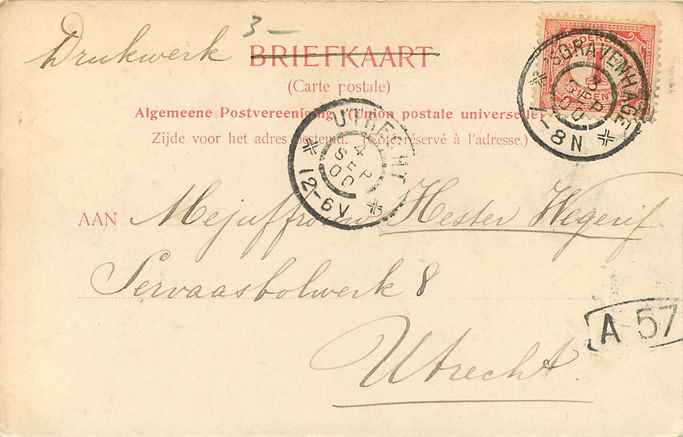 Drukwerk 3— BRIEFKAART
(Carte postale)
Algemeene Postvereeniging (Union postale universelle)
Zijde voor het adres bestemd. (Côté réservé à l'adresse.)
'SGRAVENHAGE
3
SEP
00
-8N
UTRECHT
4
SEP
00
12-6V
AAN Mejuffrouw Hester Wegerif
Servaasbolwerk 8
A 57
Utrecht.